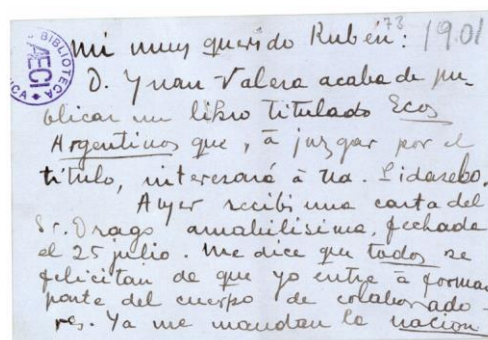 BIBLIOTECA
AECI
73 1901
Mi muy querido Rubén:
D. Juan Valera acaba de pu-
blicar un libro titulado Ecos
Argentinos que, á juzgar por el
título, interesará á Ud. Pídaselo.
Ayer recibí una carta del
Sr. Drago amabilísima, fechada
el 25 julio. Me dice que todos se
felicitan de que yo entre á formar
parte del cuerpo de colaborado-
res. Ya me mandan la nacion